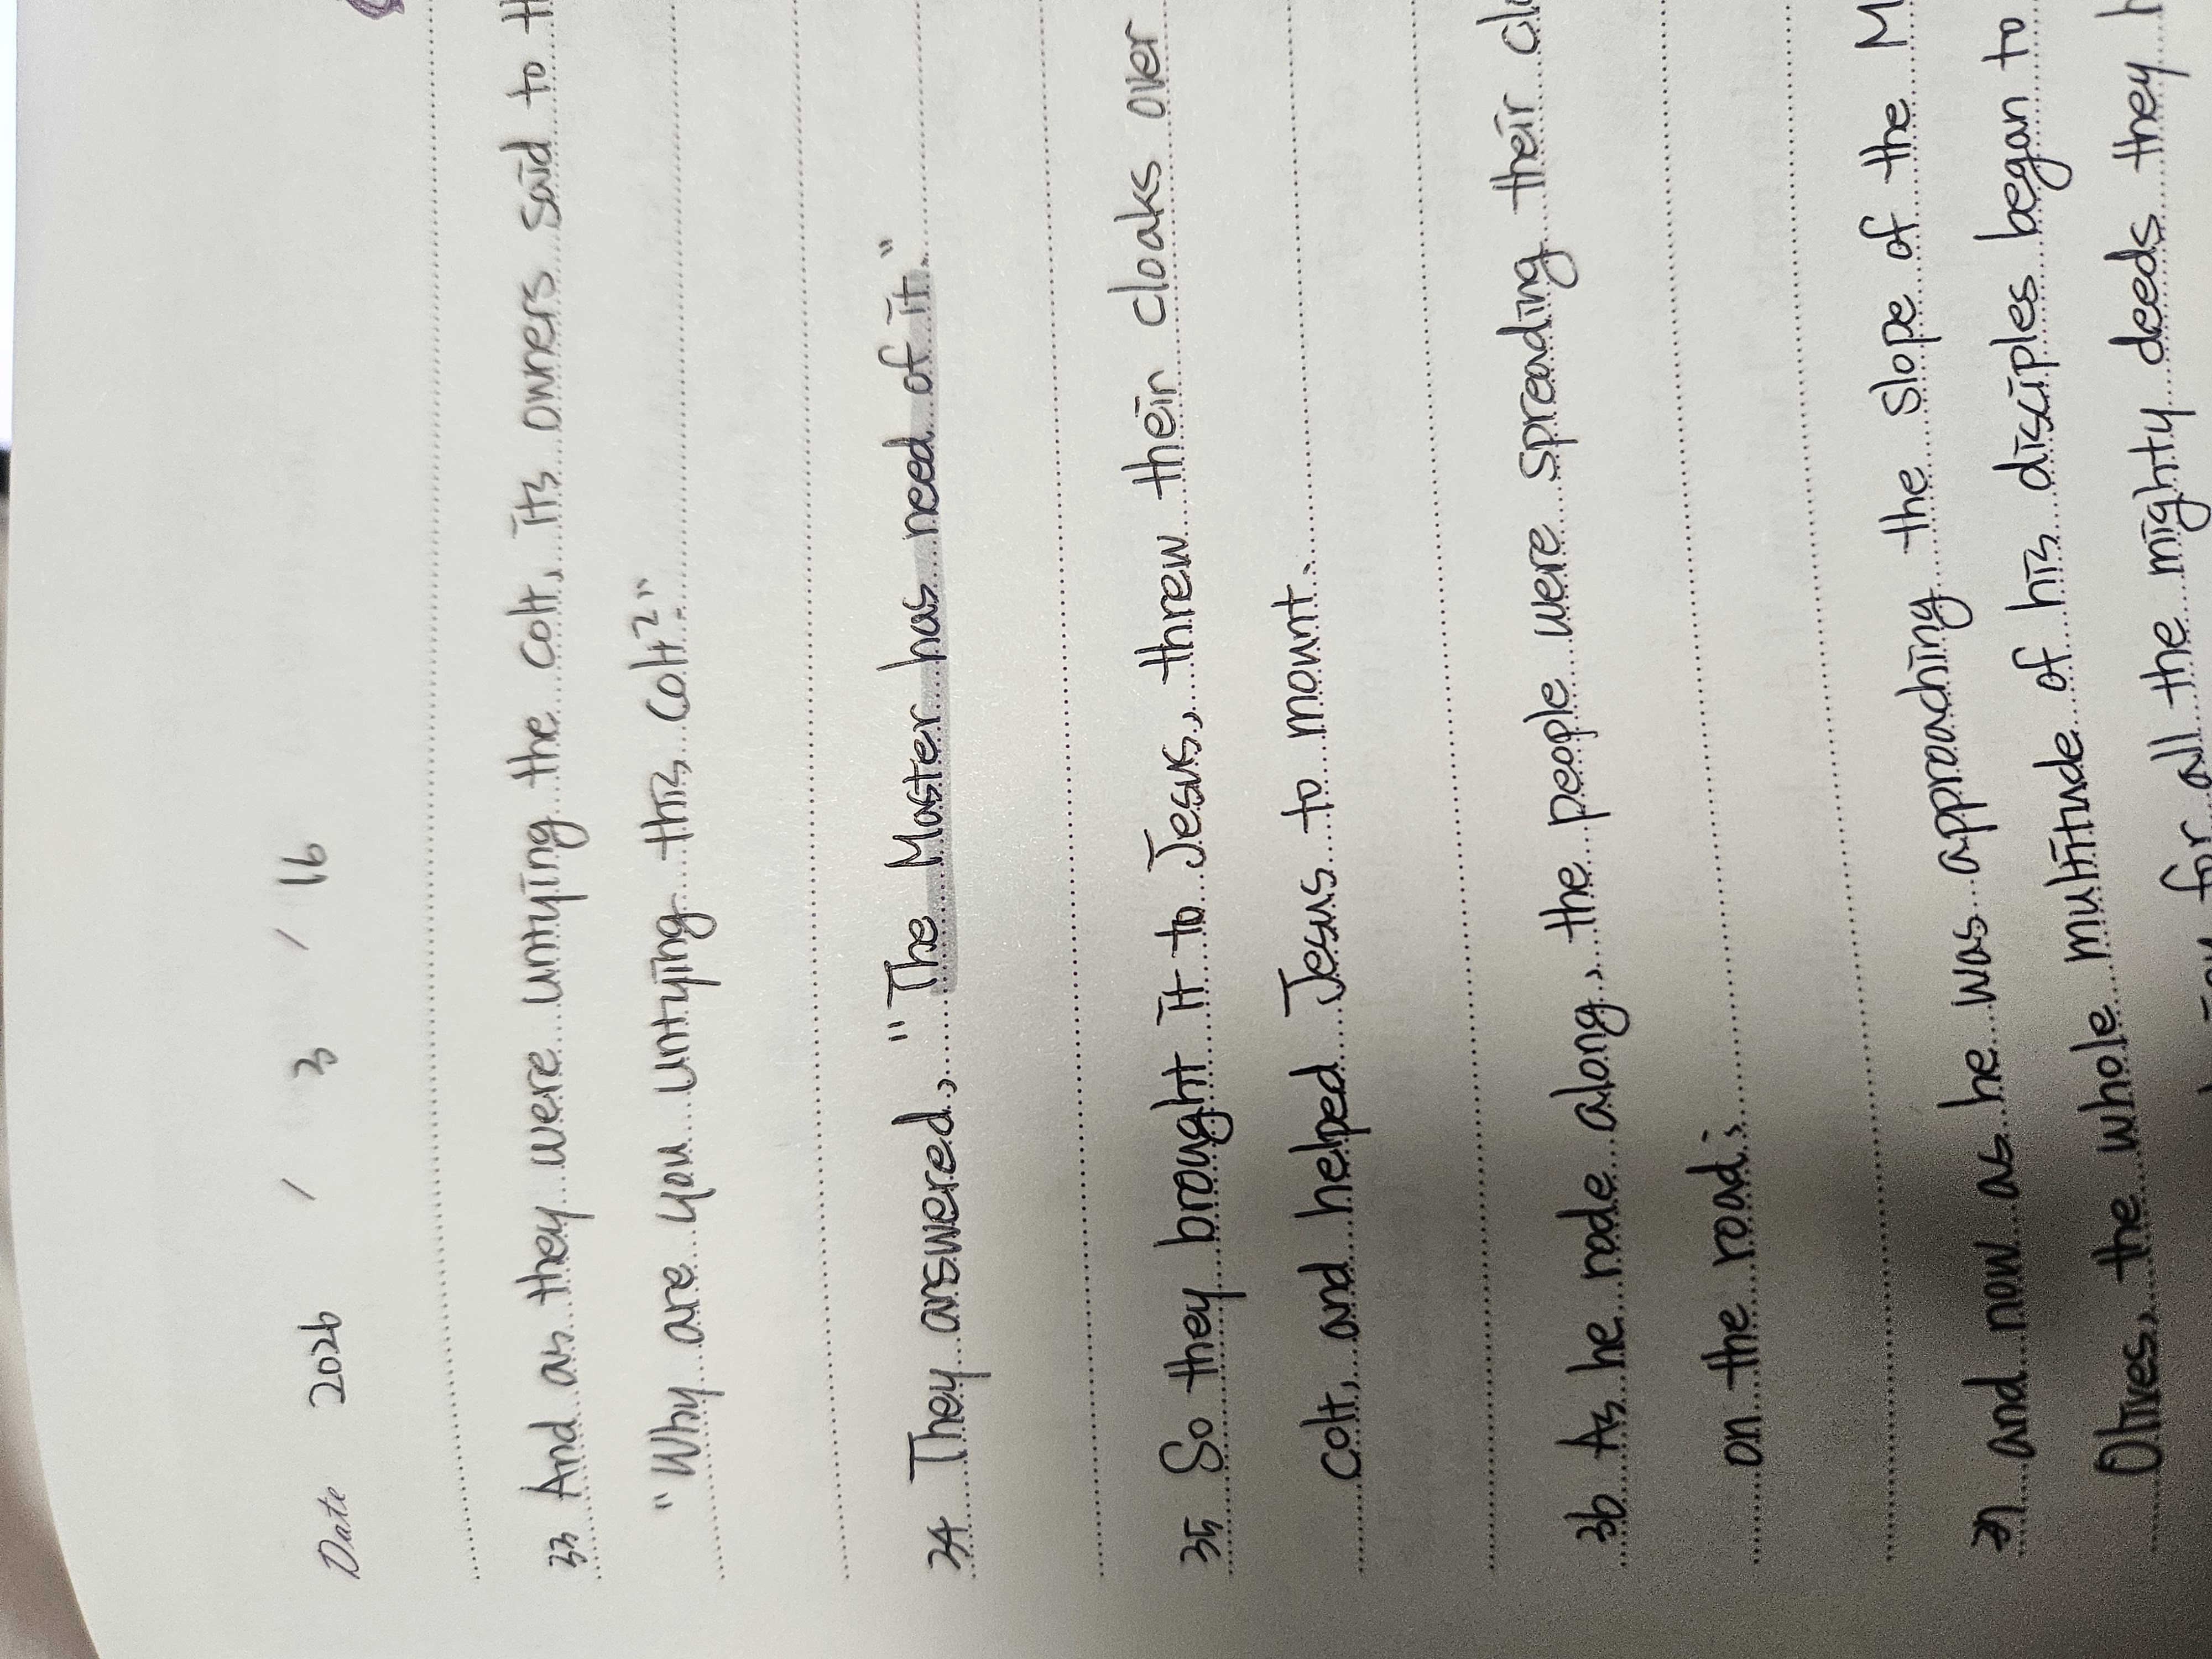 Date 2026 / 3 / 16
33 And as they were untying the colt, its owners said to
"Why are you untying this colt?"
34 They answered, "The Master has need of it."
35 So they brought it to Jesus, threw their cloaks over
colt, and helped Jesus to mount.
36 As he rode along, the people were spreading their
on the road;
37 and now as he was approaching the slope of the
Olives, the whole multitude of his disciples began to
for all the mighty deeds they